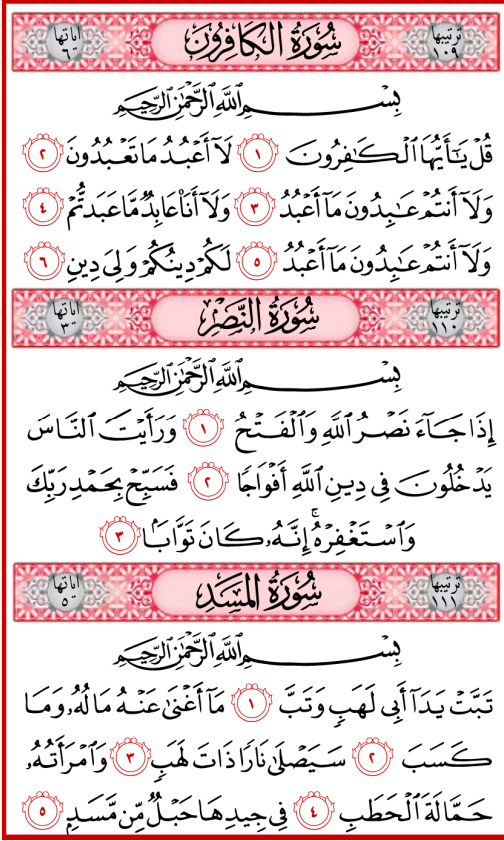 ترتيبها ١٠٩ سُورَةُ الكَافِرُونَ اياتها ٦
بِسْمِ ٱللَّهِ ٱلرَّحْمَٰنِ ٱلرَّحِيمِ
قُلْ يَٰٓأَيُّهَا ٱلْكَٰفِرُونَ ١ لَآ أَعْبُدُ مَا تَعْبُدُونَ ٢
وَلَآ أَنتُمْ عَٰبِدُونَ مَآ أَعْبُدُ ٣ وَلَآ أَنَا۠ عَابِدٌ مَّا عَبَدتُّمْ ٤
وَلَآ أَنتُمْ عَٰبِدُونَ مَآ أَعْبُدُ ٥ لَكُمْ دِينُكُمْ وَلِىَ دِينِ ٦
ترتيبها ١١٠ سُورَةُ النَّصْرِ اياتها ٣
بِسْمِ ٱللَّهِ ٱلرَّحْمَٰنِ ٱلرَّحِيمِ
إِذَا جَآءَ نَصْرُ ٱللَّهِ وَٱلْفَتْحُ ١ وَرَأَيْتَ ٱلنَّاسَ
يَدْخُلُونَ فِى دِينِ ٱللَّهِ أَفْوَاجًا ٢ فَسَبِّحْ بِحَمْدِ رَبِّكَ
وَٱسْتَغْفِرْهُ ۚ إِنَّهُۥ كَانَ تَوَّابًۢا ٣
ترتيبها ١١١ سُورَةُ المَسَدِ اياتها ٥
بِسْمِ ٱللَّهِ ٱلرَّحْمَٰنِ ٱلرَّحِيمِ
تَبَّتْ يَدَآ أَبِى لَهَبٍ وَتَبَّ ١ مَآ أَغْنَىٰ عَنْهُ مَالُهُۥ وَمَا
كَسَبَ ٢ سَيَصْلَىٰ نَارًا ذَاتَ لَهَبٍ ٣ وَٱمْرَأَتُهُۥ
حَمَّالَةَ ٱلْحَطَبِ ٤ فِى جِيدِهَا حَبْلٌ مِّن مَّسَدٍۭ ٥